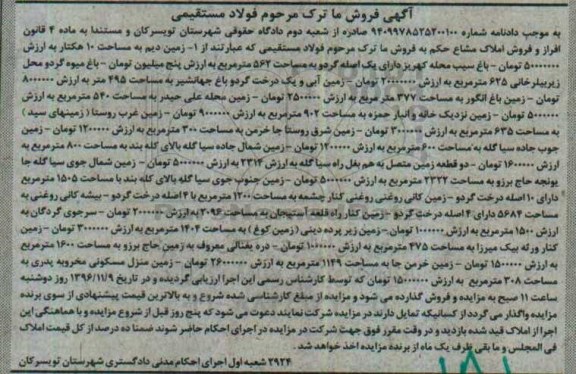 آگهی فروش ما ترک مرحوم فولاد مستقیمی
به موجب دادنامه شماره ۹۴۰۹۹۷۸۵۲۵۲۰۰۱۰۰ صادره از شعبه دوم دادگاه حقوقی شهرستان تویسرکان و مستندا به ماده ۴ قانون
افراز و فروش املاک مشاع حکم به فروش ما ترک مرحوم فولاد مستقیمی که عبارتند از ۱- زمین دیم به مساحت ۱۰ هکتار به ارزش
۵۰۰۰۰۰۰ تومان - باغ سیب محله کهریز دارای یک اصله گردو به مساحت ۵۶۲ مترمربع به ارزش پنج میلیون تومان - باغ میوه گردو محل
زیربیلرخانی ۶۲۵ مترمربع به ارزش ۲۰۰۰۰۰۰ تومان - زمین آبی و یک درخت گردو باغ جهانشیر به مساحت ۴۹۵ متر به ارزش ۸۰۰۰۰۰۰
تومان - زمین باغ انگور به مساحت ۳۷۷ متر به ارزش ۲۵۰۰۰۰۰ تومان - زمین محله علی حیدر به مساحت ۵۴۰ مترمربع به ارزش
۵۰۰۰۰۰۰ تومان - زمین نزدیک خانه و انبار حمزه به مساحت ۹۰۲ مترمربع به ارزش ۹۰۰۰۰۰۰ تومان - زمین غرب روستا ( زمینهای سید )
به مساحت ۶۳۵ مترمربع به ارزش ۳۰۰۰۰۰۰ تومان - زمین شرق روستا جا خرمن به مساحت ۳۰۰ مترمربع به ارزش ۱۲۰۰۰۰۰ تومان -
جوب جاده سیا گله به مساحت ۶۰۰ مترمربع به ارزش ۱۲۰۰۰۰۰ تومان - زمین شمال جاده سیا گله بالای کله بند به مساحت ۸۰۰ مترمربع به
ارزش ۱۶۰۰۰۰۰ تومان - دو قطعه زمین متصل به هم بغل راه سیا گله به ارزش ۲۳۱۴ به ارزش ۵۰۰۰۰۰۰ تومان - زمین شمال جوی سیا گله جا
یونجه حاج برزو به مساحت ۲۳۲۲ مترمربع به ارزش ۵۰۰۰۰۰۰ تومان - زمین جنوب جوی سیا گله بالای کله بند با مساحت ۱۵۰۵ مترمربع
دارای ۱۰ اصله درخت گردو - زمین کانی روغنی روغنی کنار چشمه به مساحت ۱۲۰۰ مترمربع با ۴ اصله درخت گردو - بیشه کانی روغنی به
مساحت ۵۶۸۴ دارای ۴ اصله درخت گردو - زمین کنار راه قلعه آستیجان به مساحت ۳۰۹۶ به ارزش ۲۰۰۰۰۰۰ تومان - سرجوی گردگان به
ارزش ۱۵۰۰ مترمربع به ارزش ۱۰۰۰۰۰۰ تومان - زمین زیر پرده دینی ( زمین کوغ ) به مساحت ۱۴۰۴ مترمربع به ارزش ۳۰۰۰۰۰۰ تومان -
کنار ورله بیک میرزا به مساحت ۴۷۵ مترمربع به ارزش ۱۰۰۰۰۰۰ تومان - دره یغنائی معروف به زمین حاج برزو به مساحت ۱۶۰۰ مترمربع
به ارزش ۱۵۰۰۰۰۰ تومان - زمین خرمن جا به مساحت ۱۱۴۹ مترمربع به ارزش ۲۶۰۰۰۰۰۰ تومان - زمین منزل مسکونی مخروبه پدری به
مساحت ۳۰۸ مترمربع به ارزش ۱۵۰۰۰۰۰۰ تومان که توسط کارشناس رسمی این اجرا ارزیابی گردیده و در تاریخ ۱۳۹۶/۱۱/۹ روز دوشنبه
ساعت ۱۱ صبح به مزایده و فروش گذارده می شود و مزایده از مبلغ کارشناسی شده شروع و به بالاترین قیمت پیشنهادی از سوی برنده
مزایده واگذار می گردد از کسانیکه تمایل دارند در مزایده شرکت نمایند دعوت می شود که پنج روز قبل از شروع مزایده و با هماهنگی این
اجرا از املاک قید شده بازدید و در وقت مقرر فوق جهت شرکت در مزایده در اجرای احکام حاضر شوند ضمنا ده درصد از کل قیمت املاک
فی المجلس و ما بقی ظرف یک ماه از برنده مزایده اخذ خواهد شد .
۲۹۲۴ شعبه اول اجرای احکام مدنی دادگستری شهرستان تویسرکان